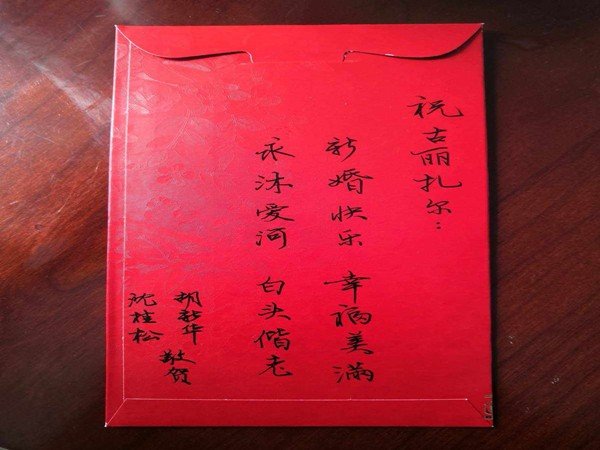 祝古丽扎尔:
新婚快乐 幸福美满
永沐爱河 白头偕老
胡新华 敬贺
沈桂松